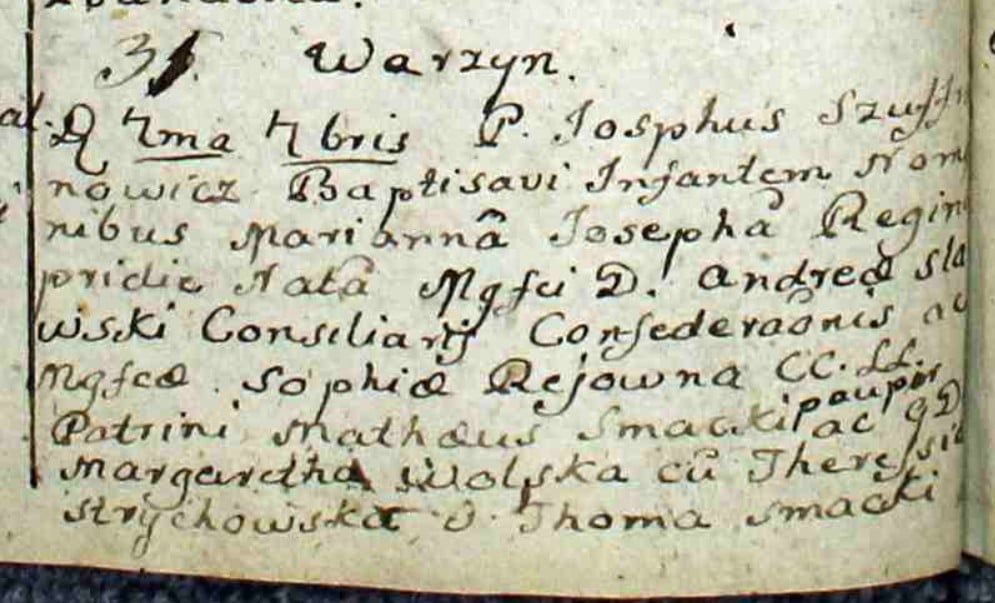 31. Warzyn.
D 7ma 7bris P. Josphus Szuffra
nowicz Baptisavi Infantem Nom
nibus Mariannâ Josephā Regin
pridie Natā Mgfci D. Andreæ Sla
wski Consiliarij Confederaōnis ac
Mgfcæ Sophiæ Rejowna CC. LL.
Patrini Mathæus Smacki pauper
Margaretha Wolska cū Theressia
Strychowska & Thoma Smacki